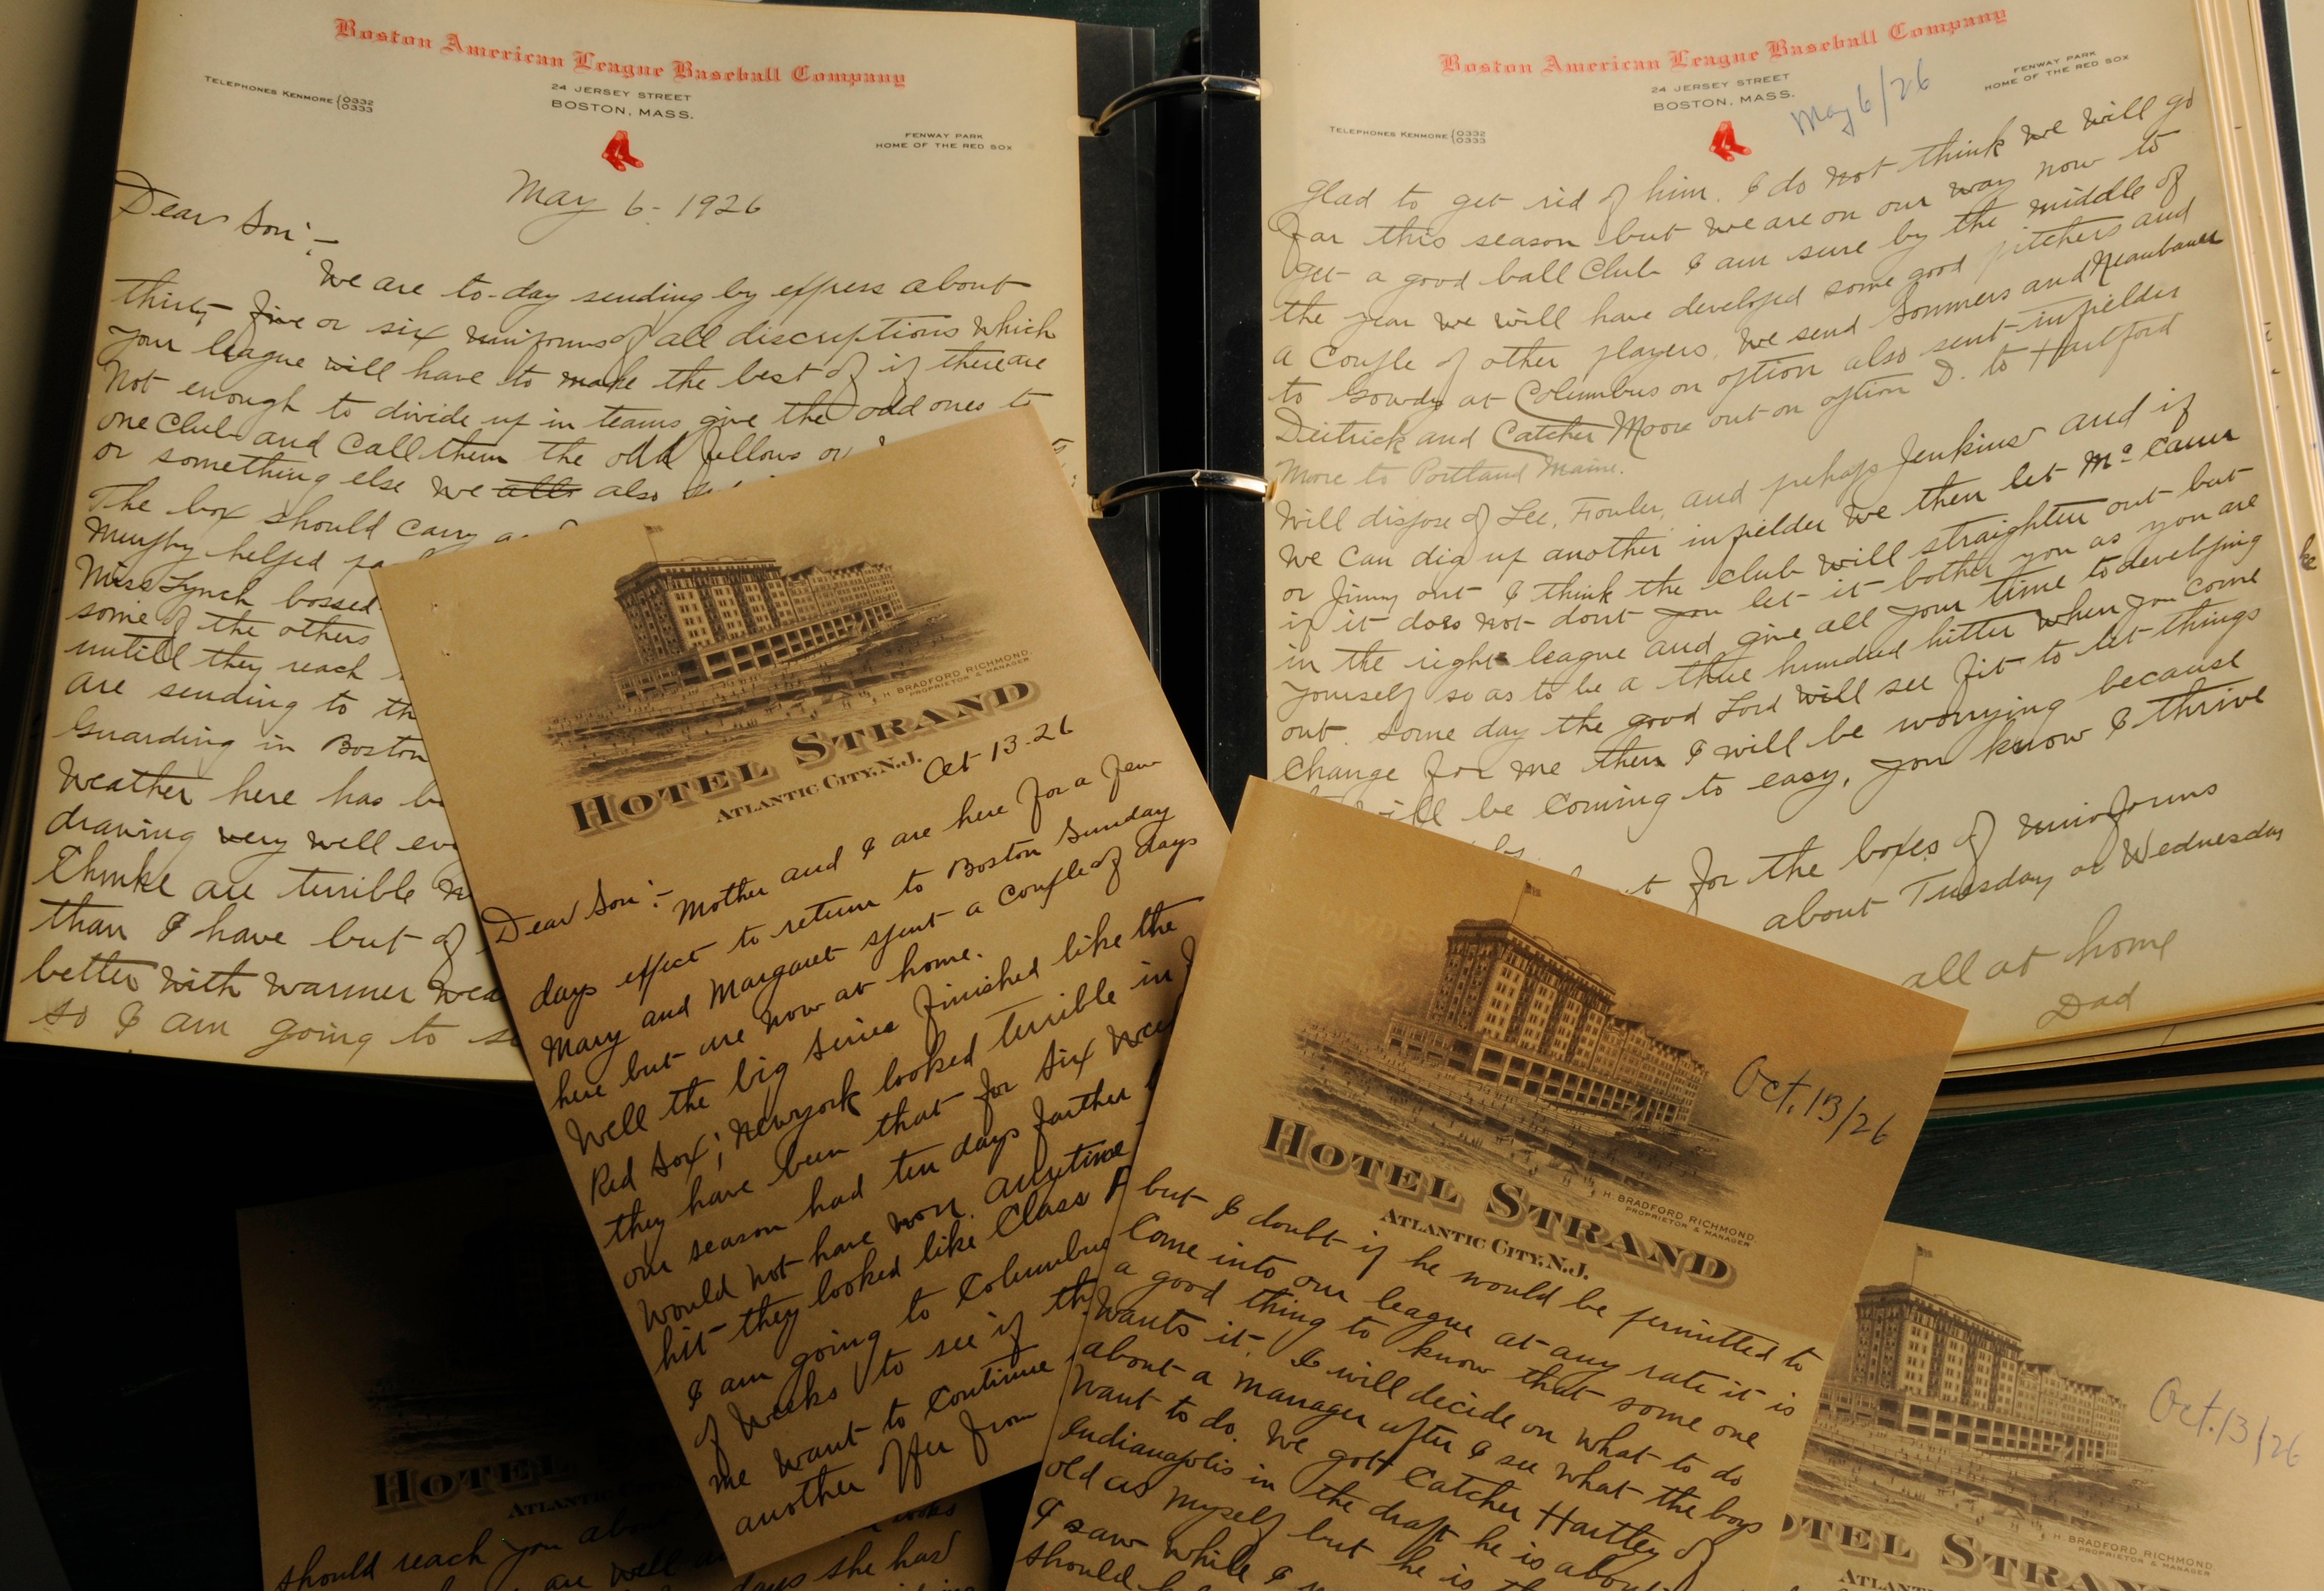 Boston American League Baseball Company
24 JERSEY STREET
BOSTON, MASS.
TELEPHONES KENMORE {0332
0333
FENWAY PARK
HOME OF THE RED SOX
May 6 - 1926
Dear Son:-
We are to-day sending by express about
thirty five or six uniforms of all discriptions which
your league will have to make the best of if there are
not enough to divide up in teams give the odd ones to
one Club and Call them the odd fellows or
or something else we alls also
The box should carry
Murphy helped
Miss Lynch bossed
some of the others
untill they reach
are sending to
Guarding in Boston
Weather here has
drawing very well
Thinke are terrible
than I have but of
better with warmer
so I am going to
Boston American League Baseball Company
24 JERSEY STREET
BOSTON, MASS.
TELEPHONES KENMORE {0332
0333
FENWAY PARK
HOME OF THE RED SOX
May 6/26
glad to get rid of him. I do not think we will go
far this season but we are on our way now to
get a good ball Club I am sure by the middle of
the year we will have developed some good pitchers and
a Couple of other players. We send Sommers and Neaubauer
to Gowdy at Columbus on option also sent infielder
Deitrick and Catcher Moore out on option D. to Hartford
More to Portland Maine.
Will dispose of Lee, Fowler, and perhaps Jenkins and if
we can dig up another infielder we then let Mc Cann
or Jimmy out I think the club will straighten out but
if it does not dont you let it bother you as you are
in the right league and give all your time to developing
yourself so as to be a three hundred hitter when you come
out. Some day the good Lord will see fit to let things
change for me then I will be worrying because
will be coming to easy, you know I thrive
for the boxes of uniforms
about Tuesday or Wednesday
all at home
Dad
H. BRADFORD RICHMOND.
PROPRIETOR & MANAGER
HOTEL STRAND
ATLANTIC CITY, N.J.
Oct 13-26
Dear Son:-
Mother and I are here for a few
days expect to return to Boston Sunday
Mary and Margaret spent a Couple of days
here but are now at home.
Well the big series finished like the
Red Sox; Newyork looked terrible in
they have been that for six
our season had ten days farther
would not have won. anytime
hit they looked like Class
I am going to Columbus
of weeks to see if
me want to continue
another offer from
Oct. 13/26
HOTEL STRAND
H. BRADFORD RICHMOND
PROPRIETOR & MANAGER
ATLANTIC CITY, N.J.
but I doubt if he would be permitted to
Come into our league at any rate it is
a good thing to know that some one
wants it. I will decide on what to do
about a manager after I see what the boys
want to do. We got Catcher Hartley of
Indianapolis in the draft he is about
old as myself but he is
I saw while I
should
Oct. 13/26
OTEL STRAN
H. BRADFORD RICHMOND
PROPRIETOR & MANAGER
ATLANTIC
HOTEL
ATLANTIC
should reach you about
are well
days she had